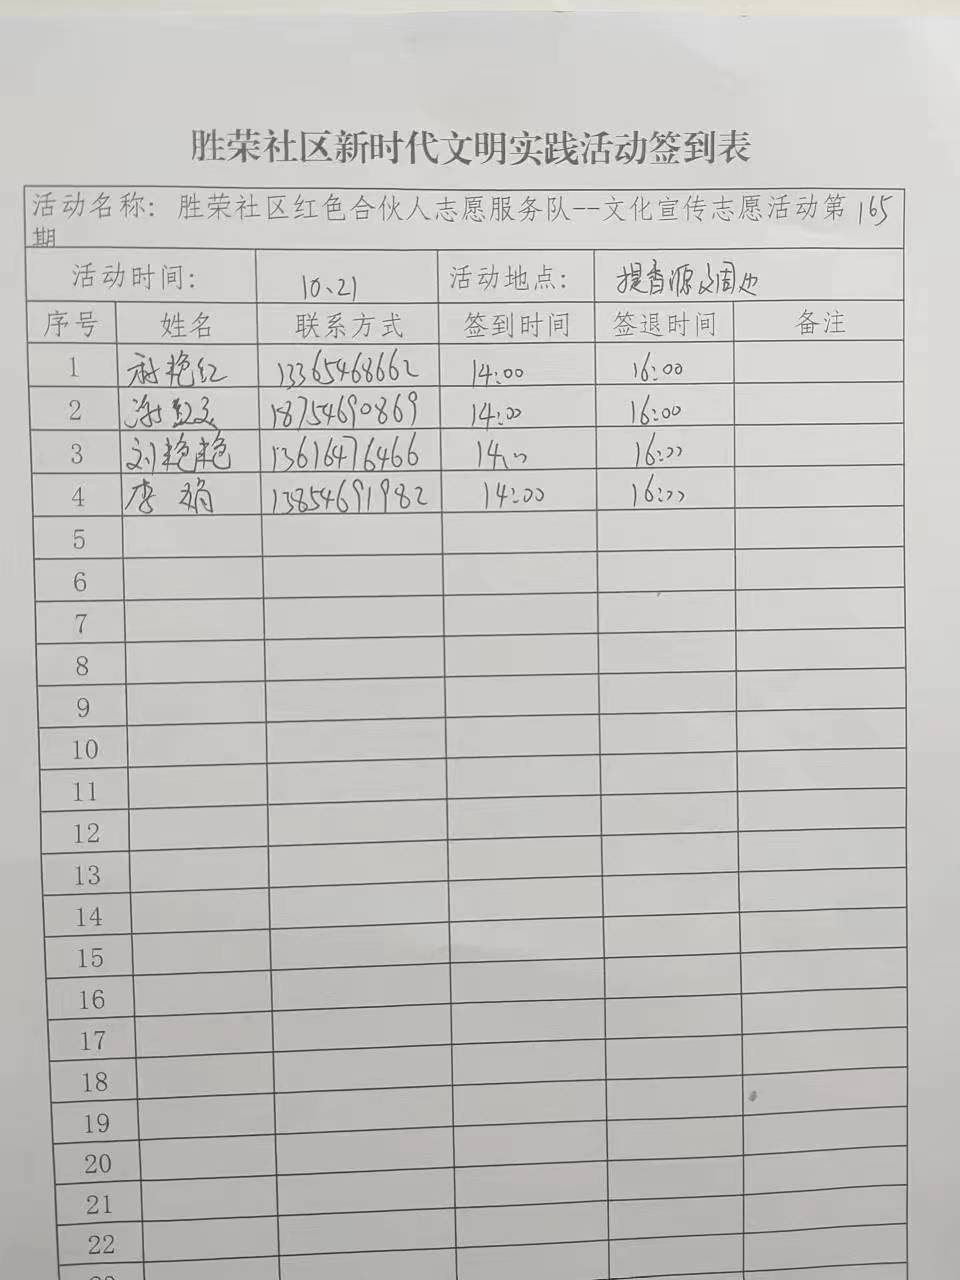 胜荣社区新时代文明实践活动签到表
活动名称：胜荣社区红色合伙人志愿服务队--文化宣传志愿活动第165
期
活动时间： 10、21 活动地点： 提香源及周边
序号 姓名 联系方式 签到时间 签退时间 备注
1 艳红 13365468662 14:00 16:00
2 谢 18754690869 14:00 16:00
3 刘艳艳 13616476466 14:00 16:00
4 李娟 13854691982 14:00 16:00
5
6
7
8
9
10
11
12
13
14
15
16
17
18
19
20
21
22